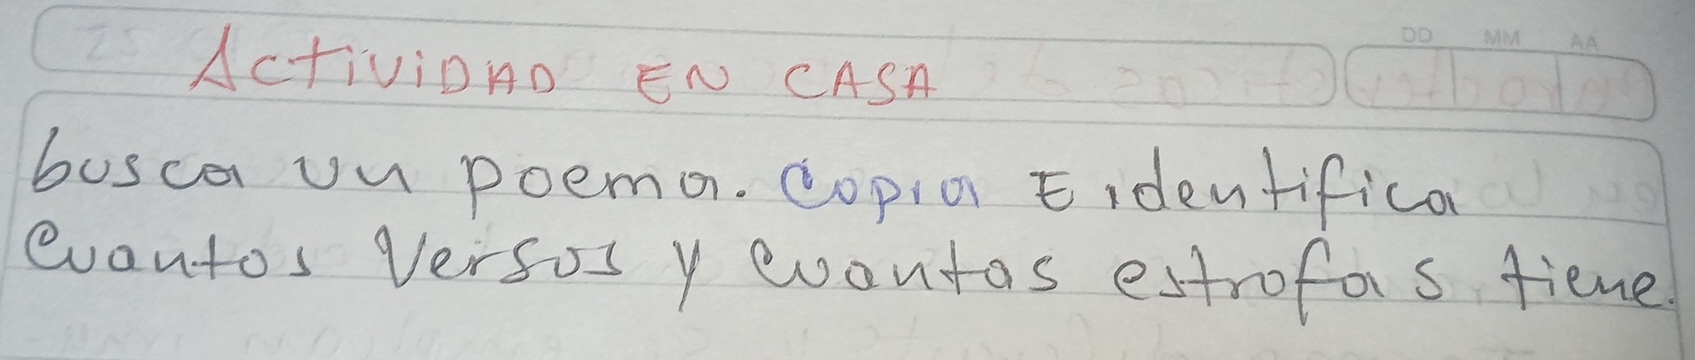 DD MM AA
ACTIVIDAD EN CASA
busca un poema. Copia E identifica
Cuantos Versos y cuantas estrofas tiene.